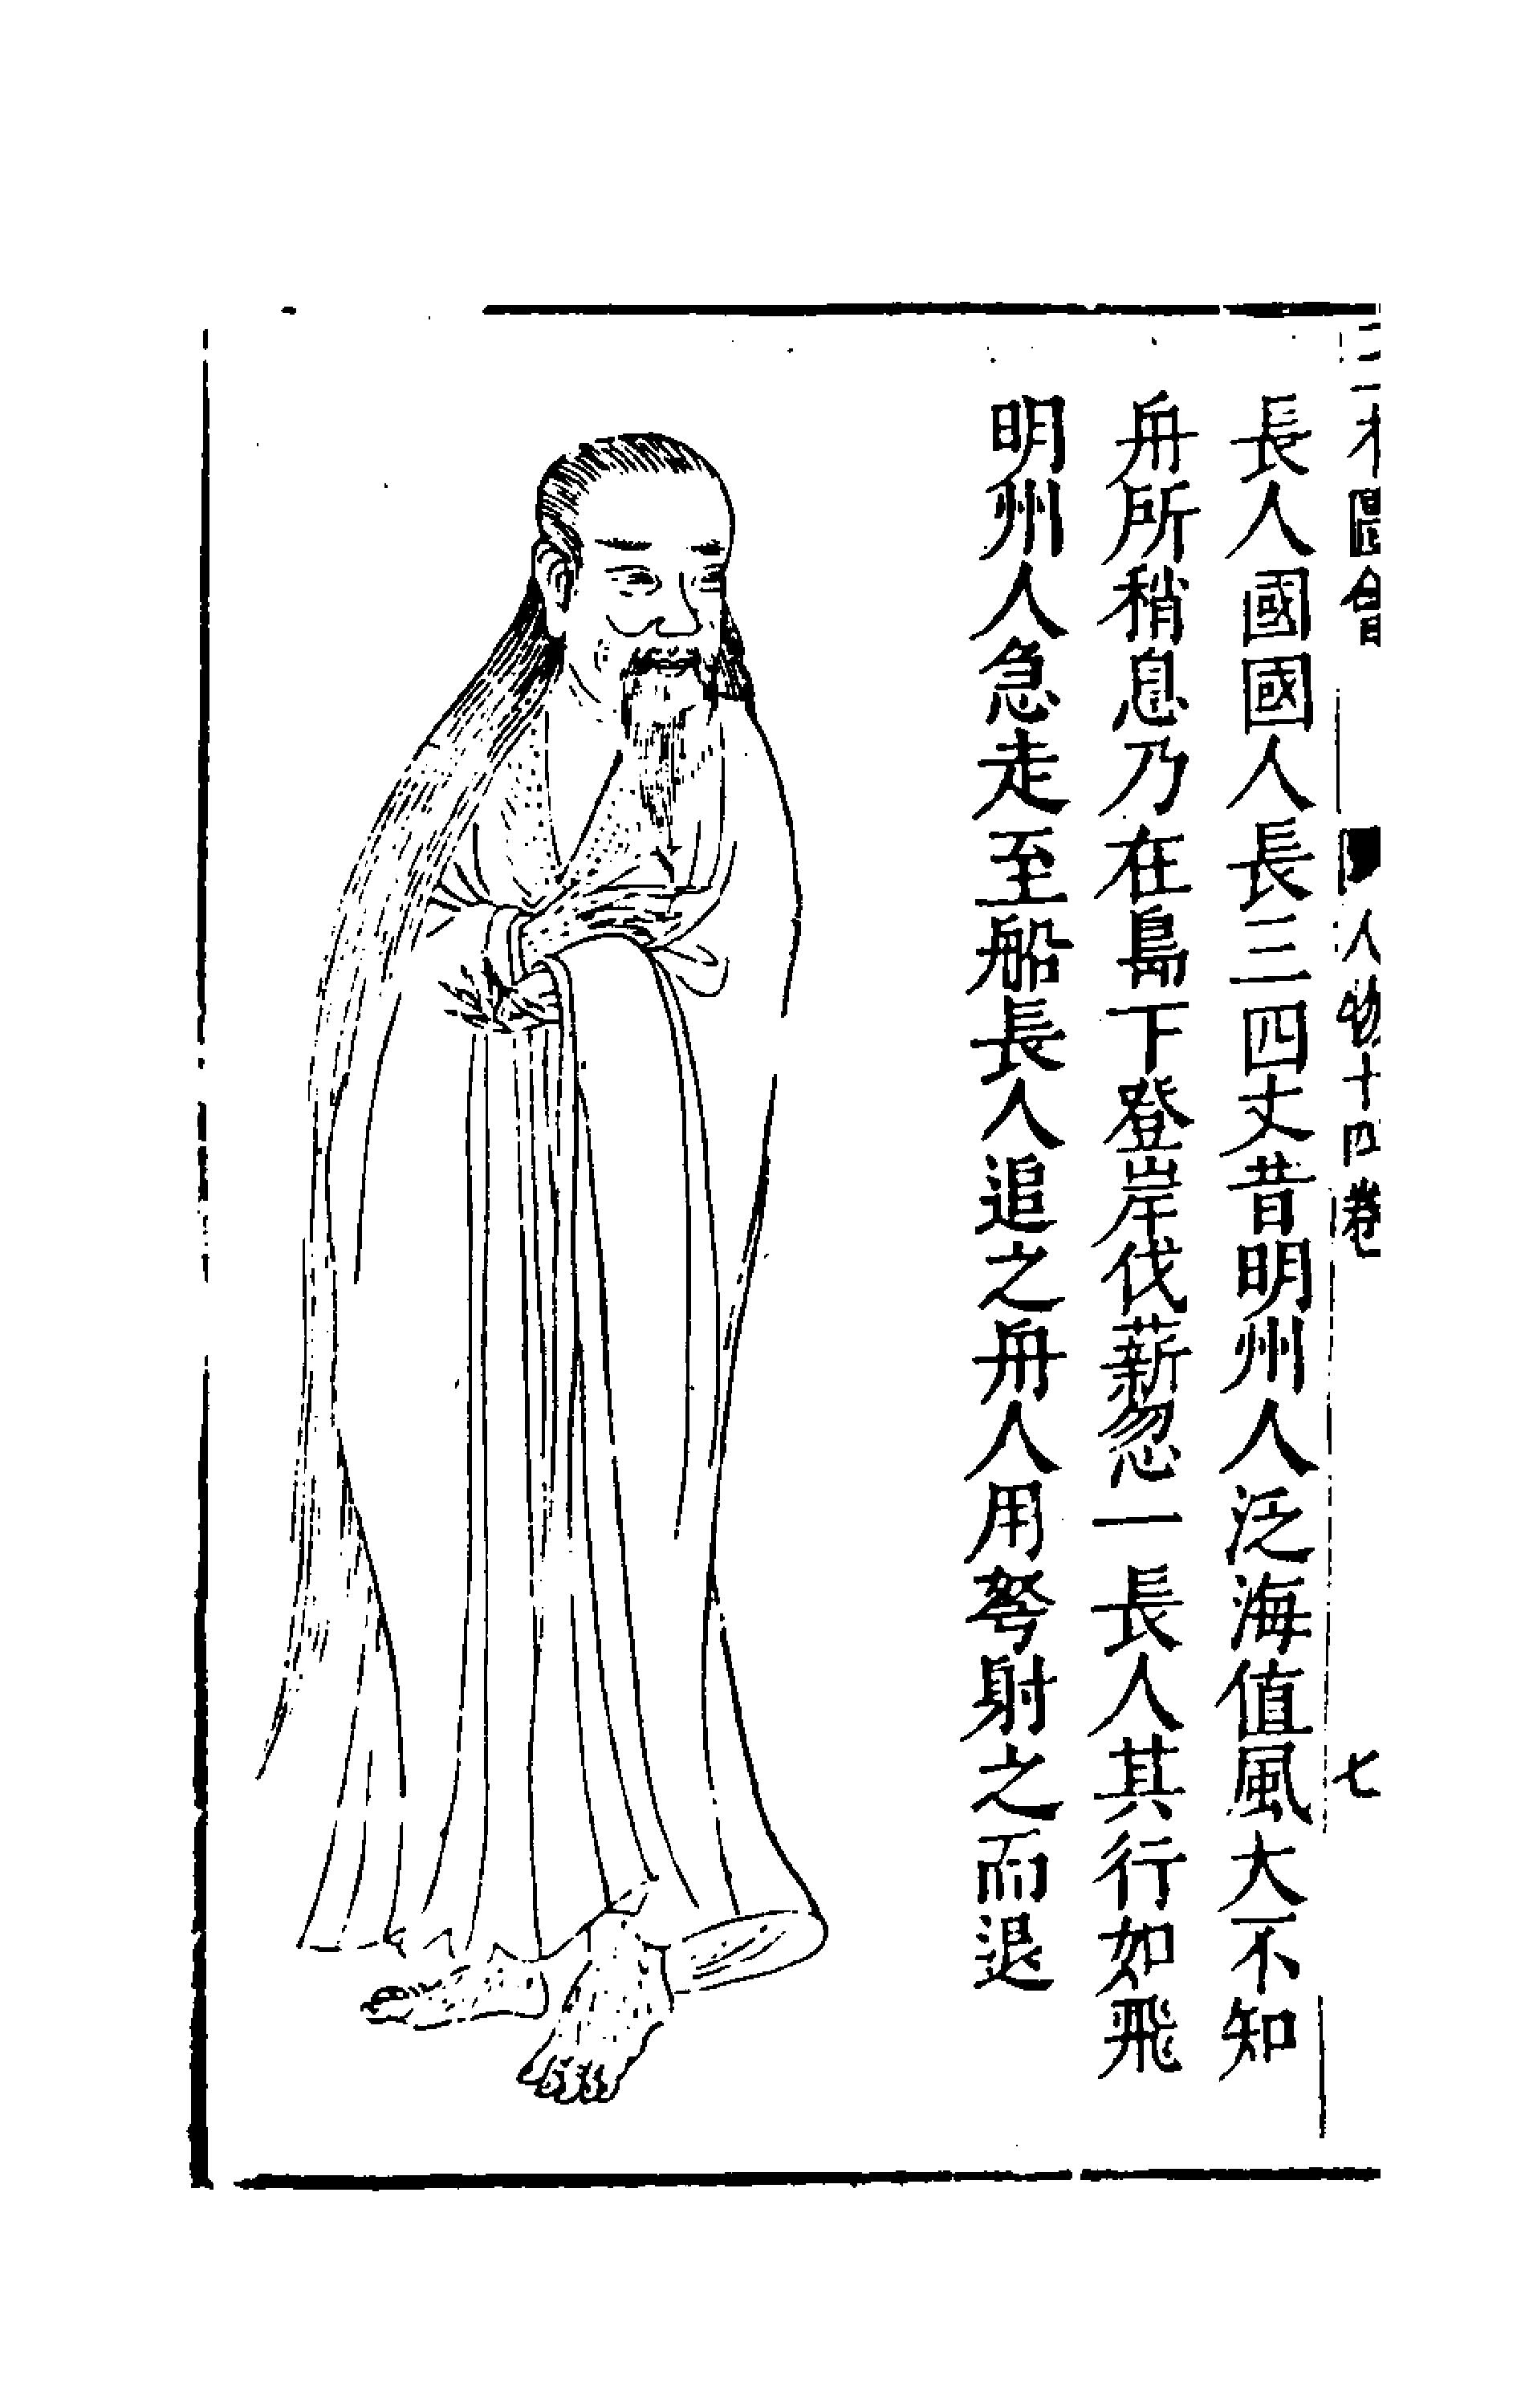 圖會 人物十四卷 七
長人國國人長三四丈昔明州人泛海值風大不知
舟所稍息乃在島下登岸伐薪忽一長人其行如飛
明州人急走至船長人追之舟人用弩射之而退